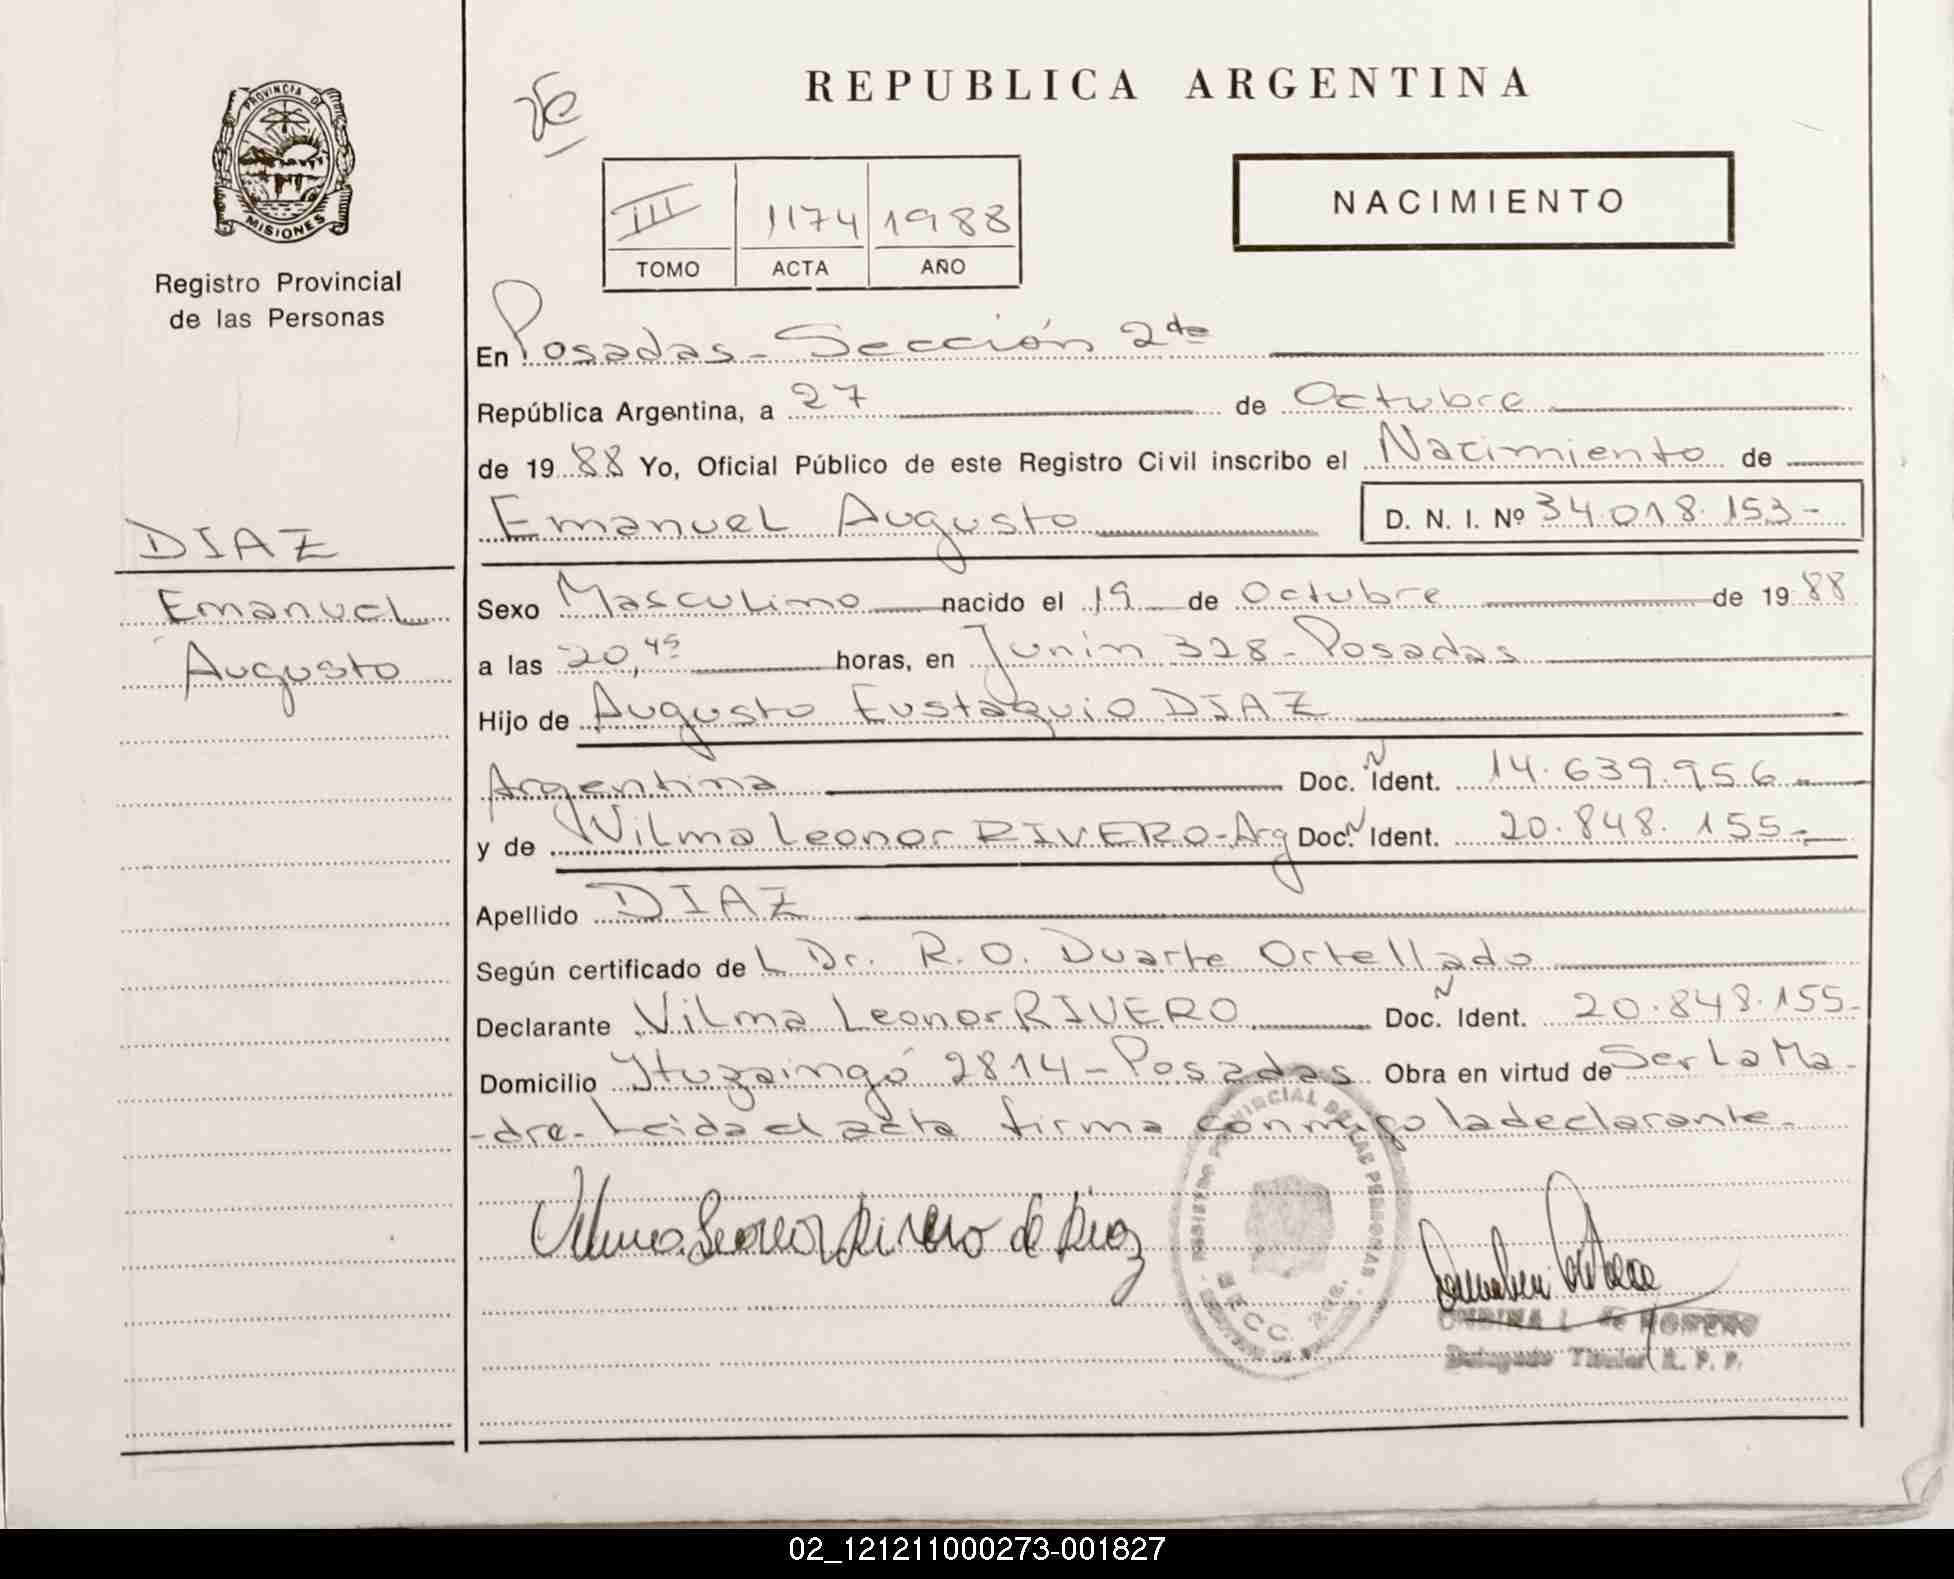 REPUBLICA ARGENTINA
PROVINCIA DE
MISIONES
Registro Provincial
de las Personas
NACIMIENTO
III 1174 1988
TOMO ACTA AÑO
En Posadas - Sección 2da
República Argentina, a 27 de Octubre
de 1988 Yo, Oficial Público de este Registro Civil inscribo el Nacimiento de
Emanuel Augusto D. N. I. Nº 34.018.153-
DIAZ
Emanuel
Augusto
Sexo Masculino nacido el 19 de Octubre de 1988
a las 20,45 horas, en Junín 328 - Posadas
Hijo de Augusto Eustaquio DIAZ
Argentina Doc. Ñ Ident. 14.639.956
y de Vilma Leonor RIVERO - Arg Doc. Ñ Ident. 20.848.155-
Apellido DIAZ
Según certificado del Dr. R. O. Duarte Ortellado
Declarante Vilma Leonor RIVERO Doc. Ñ Ident. 20.848.155-
Domicilio Ituzaingó 2814 - Posadas Obra en virtud de Ser La Ma-
-dre- Leida el acta firma conmigo la declarante-
Vilma Leonor Rivero de Diaz
REGISTRO PROVINCIAL DE LAS PERSONAS
SECC. 2da.
L. de ROMERO
Delegado Titular R. P. P.
02_121211000273-001827